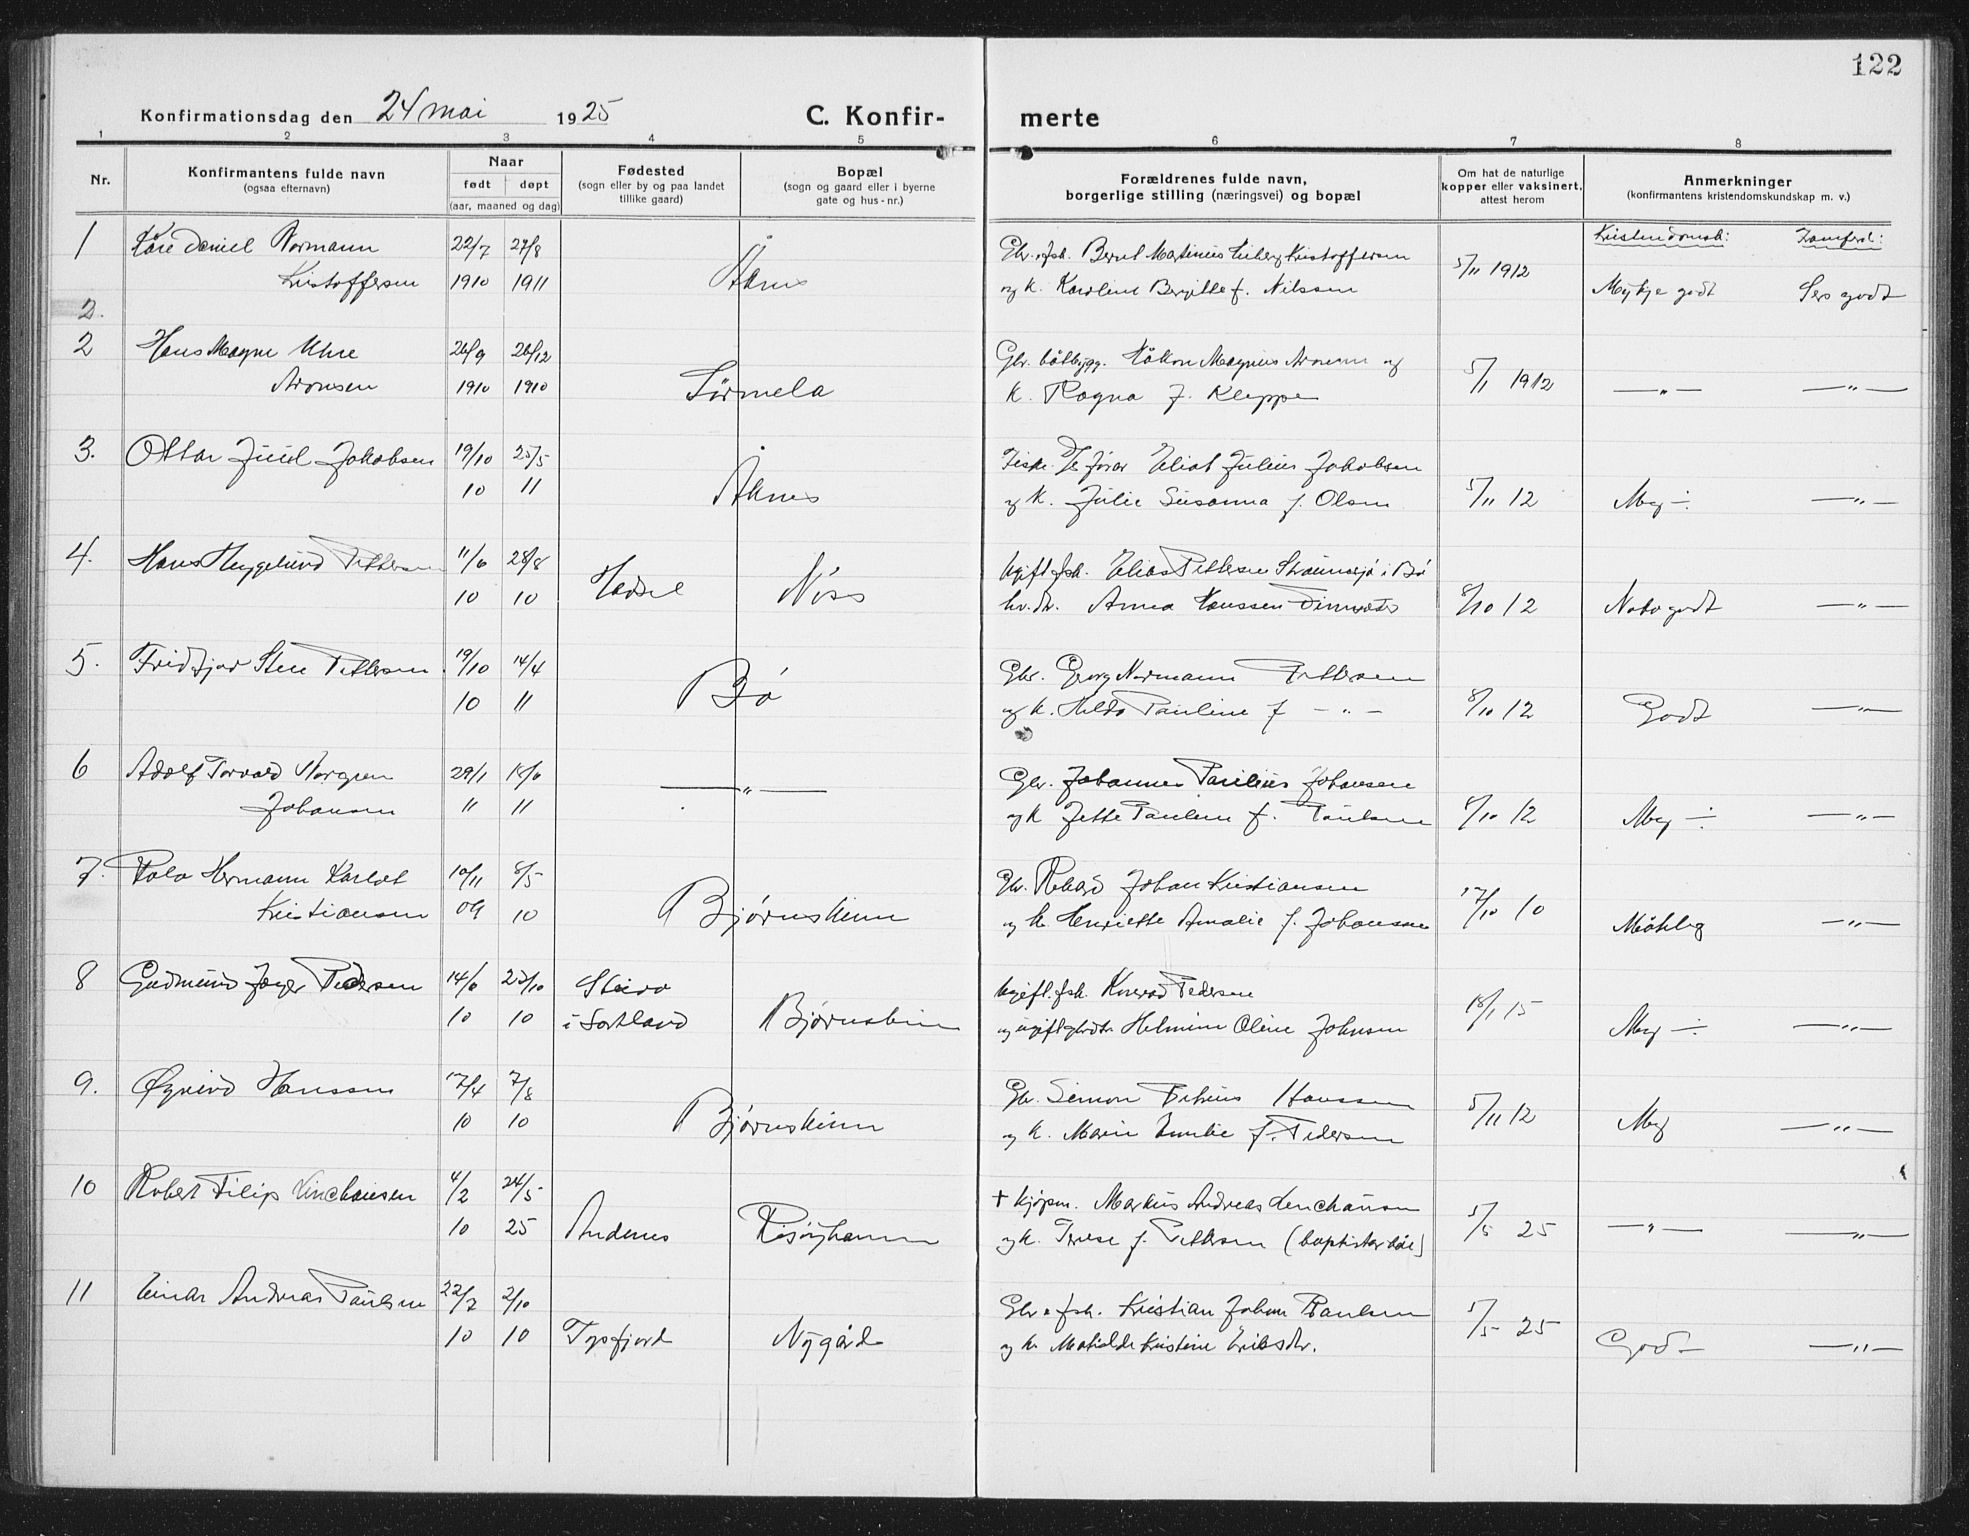 122
Konfirmationsdag den 24 mai 1925
C. Konfir- merte
1 2 3 4 5 6 7 8
Nr.
Konfirmantens fulde navn
(ogsaa efternavn)
Naar
født døpt
(aar, maaned og dag)
Fødested
(sogn eller by og paa landet
tillike gaard)
Bopæl
(sogn og gaard eller i byerne
gate og hus-nr.)
Forældrenes fulde navn,
borgerlige stilling (næringsvei) og bopæl
Om hat de naturlige
kopper eller vaksinert,
attest herom
Anmerkninger
(konfirmantens kristendomskundskap m. v.)
Kristendomsk:
1 Kåre Daniel Normann 22/7 27/8 Gbr. Bernt Martinius Kristoffersen 5/11 1912
Kristoffersen 1910 1911 Åknes og k. Karoline Bergitte f. Nilssen Mykje godt Sers godt
2.
2 Hans Magne Uhre 26/9 26/12 Gbr. båtbygg. Håkon Magnus Aronsen og 5/11 1912
Aronsen 1910 1910 Sørmela k. Ragna f. Kleppe — " — — " —
3. Ottar Juul Jakobsen 19/10 25/5 Eliot Julius Jakobsen
10 11 Åknes og k. Julie Susanna f. Olsen 5/11 12 Meg ÷ — " —
4. Hans Hyggelund Pettersen 11/6 28/8 Hadsel Ugift fsk. Elias Pettersen i Bø
10 10 Anna Hanssen 8/10 12 Noko godt — " —
5. Fridtjov Sten Pettersen 19/10 14/4 Bø Gbr. Georg Normann Pettersen
10 11 og k. Hilda Pauline f — " — 8/10 12 Godt — " —
6 Adolf Torvald Norgren 29/1 18/6 — " — Gbr. Johannes Paulius Johansen
Johansen 11 11 og k Jette Pauline f. Paulsen 8/10 12 Meg ÷ — " —
7. Palo Hermann Karlot 10/11 8/5 Gbr. Rikard Johan Kristiansen 17/10 10
Kristiansen 09 10 Bjørnskinn og k. Henriette Amalie f. Johansen Måteleg — " —
8 Gudmund Jæger Pedersen 14/6 23/10 Steiro Ugift. fsk. Konrad Pedersen 18/1 15
10 10 i Sortland Bjørnskinn og ugift Helmine Oline Johnsen Meg ÷ — " —
9. Øyvind Hanssen 17/4 7/8 Gbr. Simon Petrus Hanssen 5/11 12
10 10 Bjørnskinn og k. Marie Emilie f. Pedersen Meg — " —
10 Robert Filip Linchausen 4/2 24/5 + kjøpm. Markus Andreas Linchausen
10 25 Andenes Risøyhamn og k. Terese f. Pettersen (baptistar båe) 1/5 25 — " — — " —
11 Einar Andreas Paulsen 22/7 2/10 Gbr. & fsk. Kristian Johan Paulsen 1/5 25
10 10 Tysfjord Nygård og k. Matilde Kristine Eriksdtr. Godt — " —